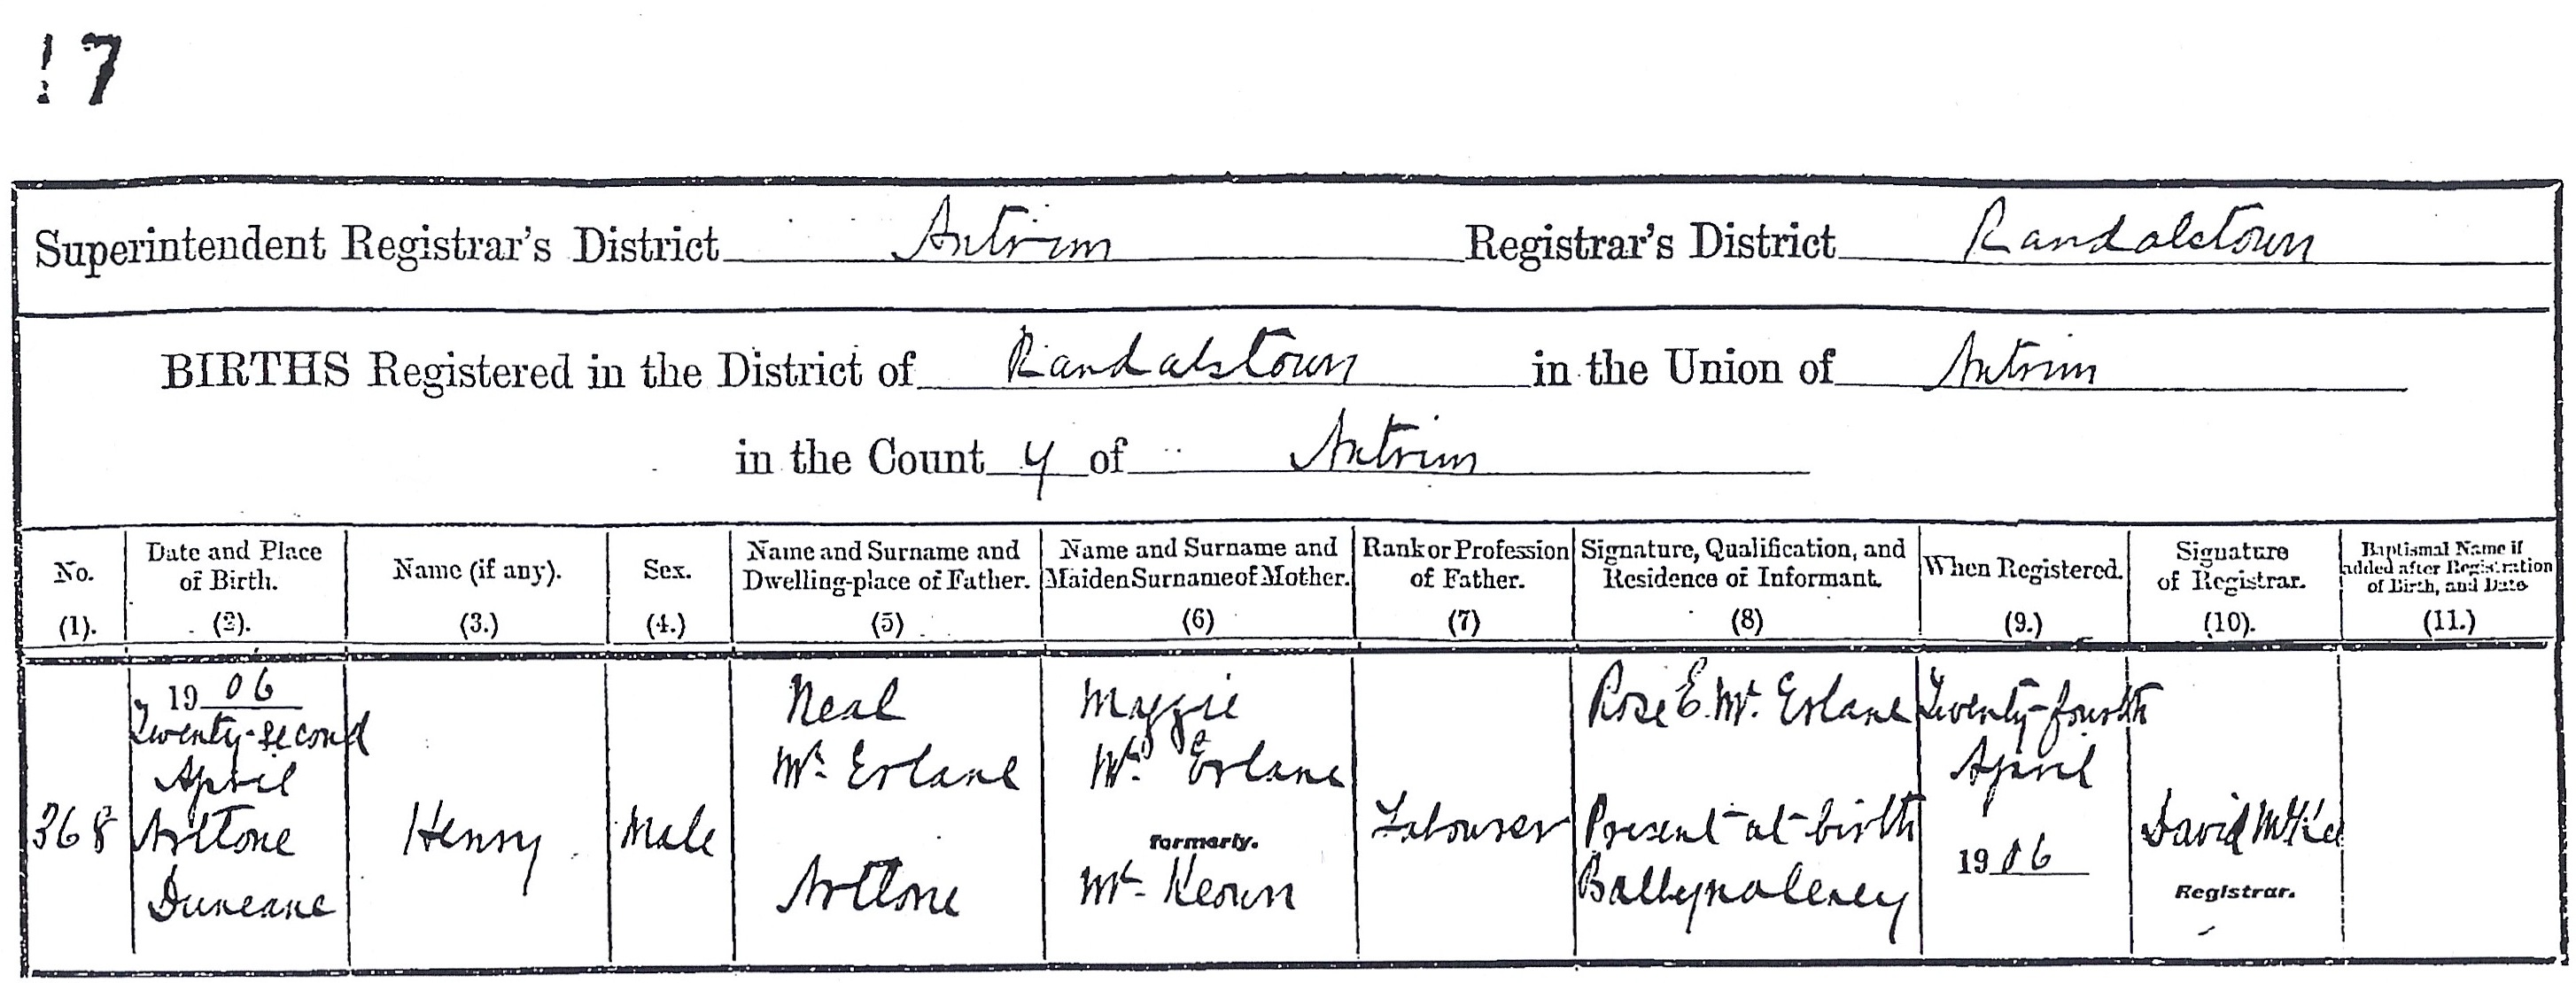 17
Superintendent Registrar's District Antrim Registrar's District Randalstown
BIRTHS Registered in the District of Randalstown in the Union of Antrim
in the County of Antrim
No. (1).
Date and Place of Birth. (2).
Name (if any). (3.)
Sex. (4.)
Name and Surname and Dwelling-place of Father. (5)
Name and Surname and Maiden Surname of Mother. (6)
Rank or Profession of Father. (7)
Signature, Qualification, and Residence of Informant. (8)
When Registered. (9.)
Signature of Registrar. (10).
Baptismal Name if added after Registration of Birth, and Date (11.)
368
1906
Twenty-second
April
Artlone
Duneane
Henry
Male
Neal
Mc Erlane
Artlone
Maggie
Mc Erlane
formerly.
Mc Keown
Labourer
Rose E. Mc Erlane
Present at birth
Twenty-fourth
April
1906
David
Registrar.